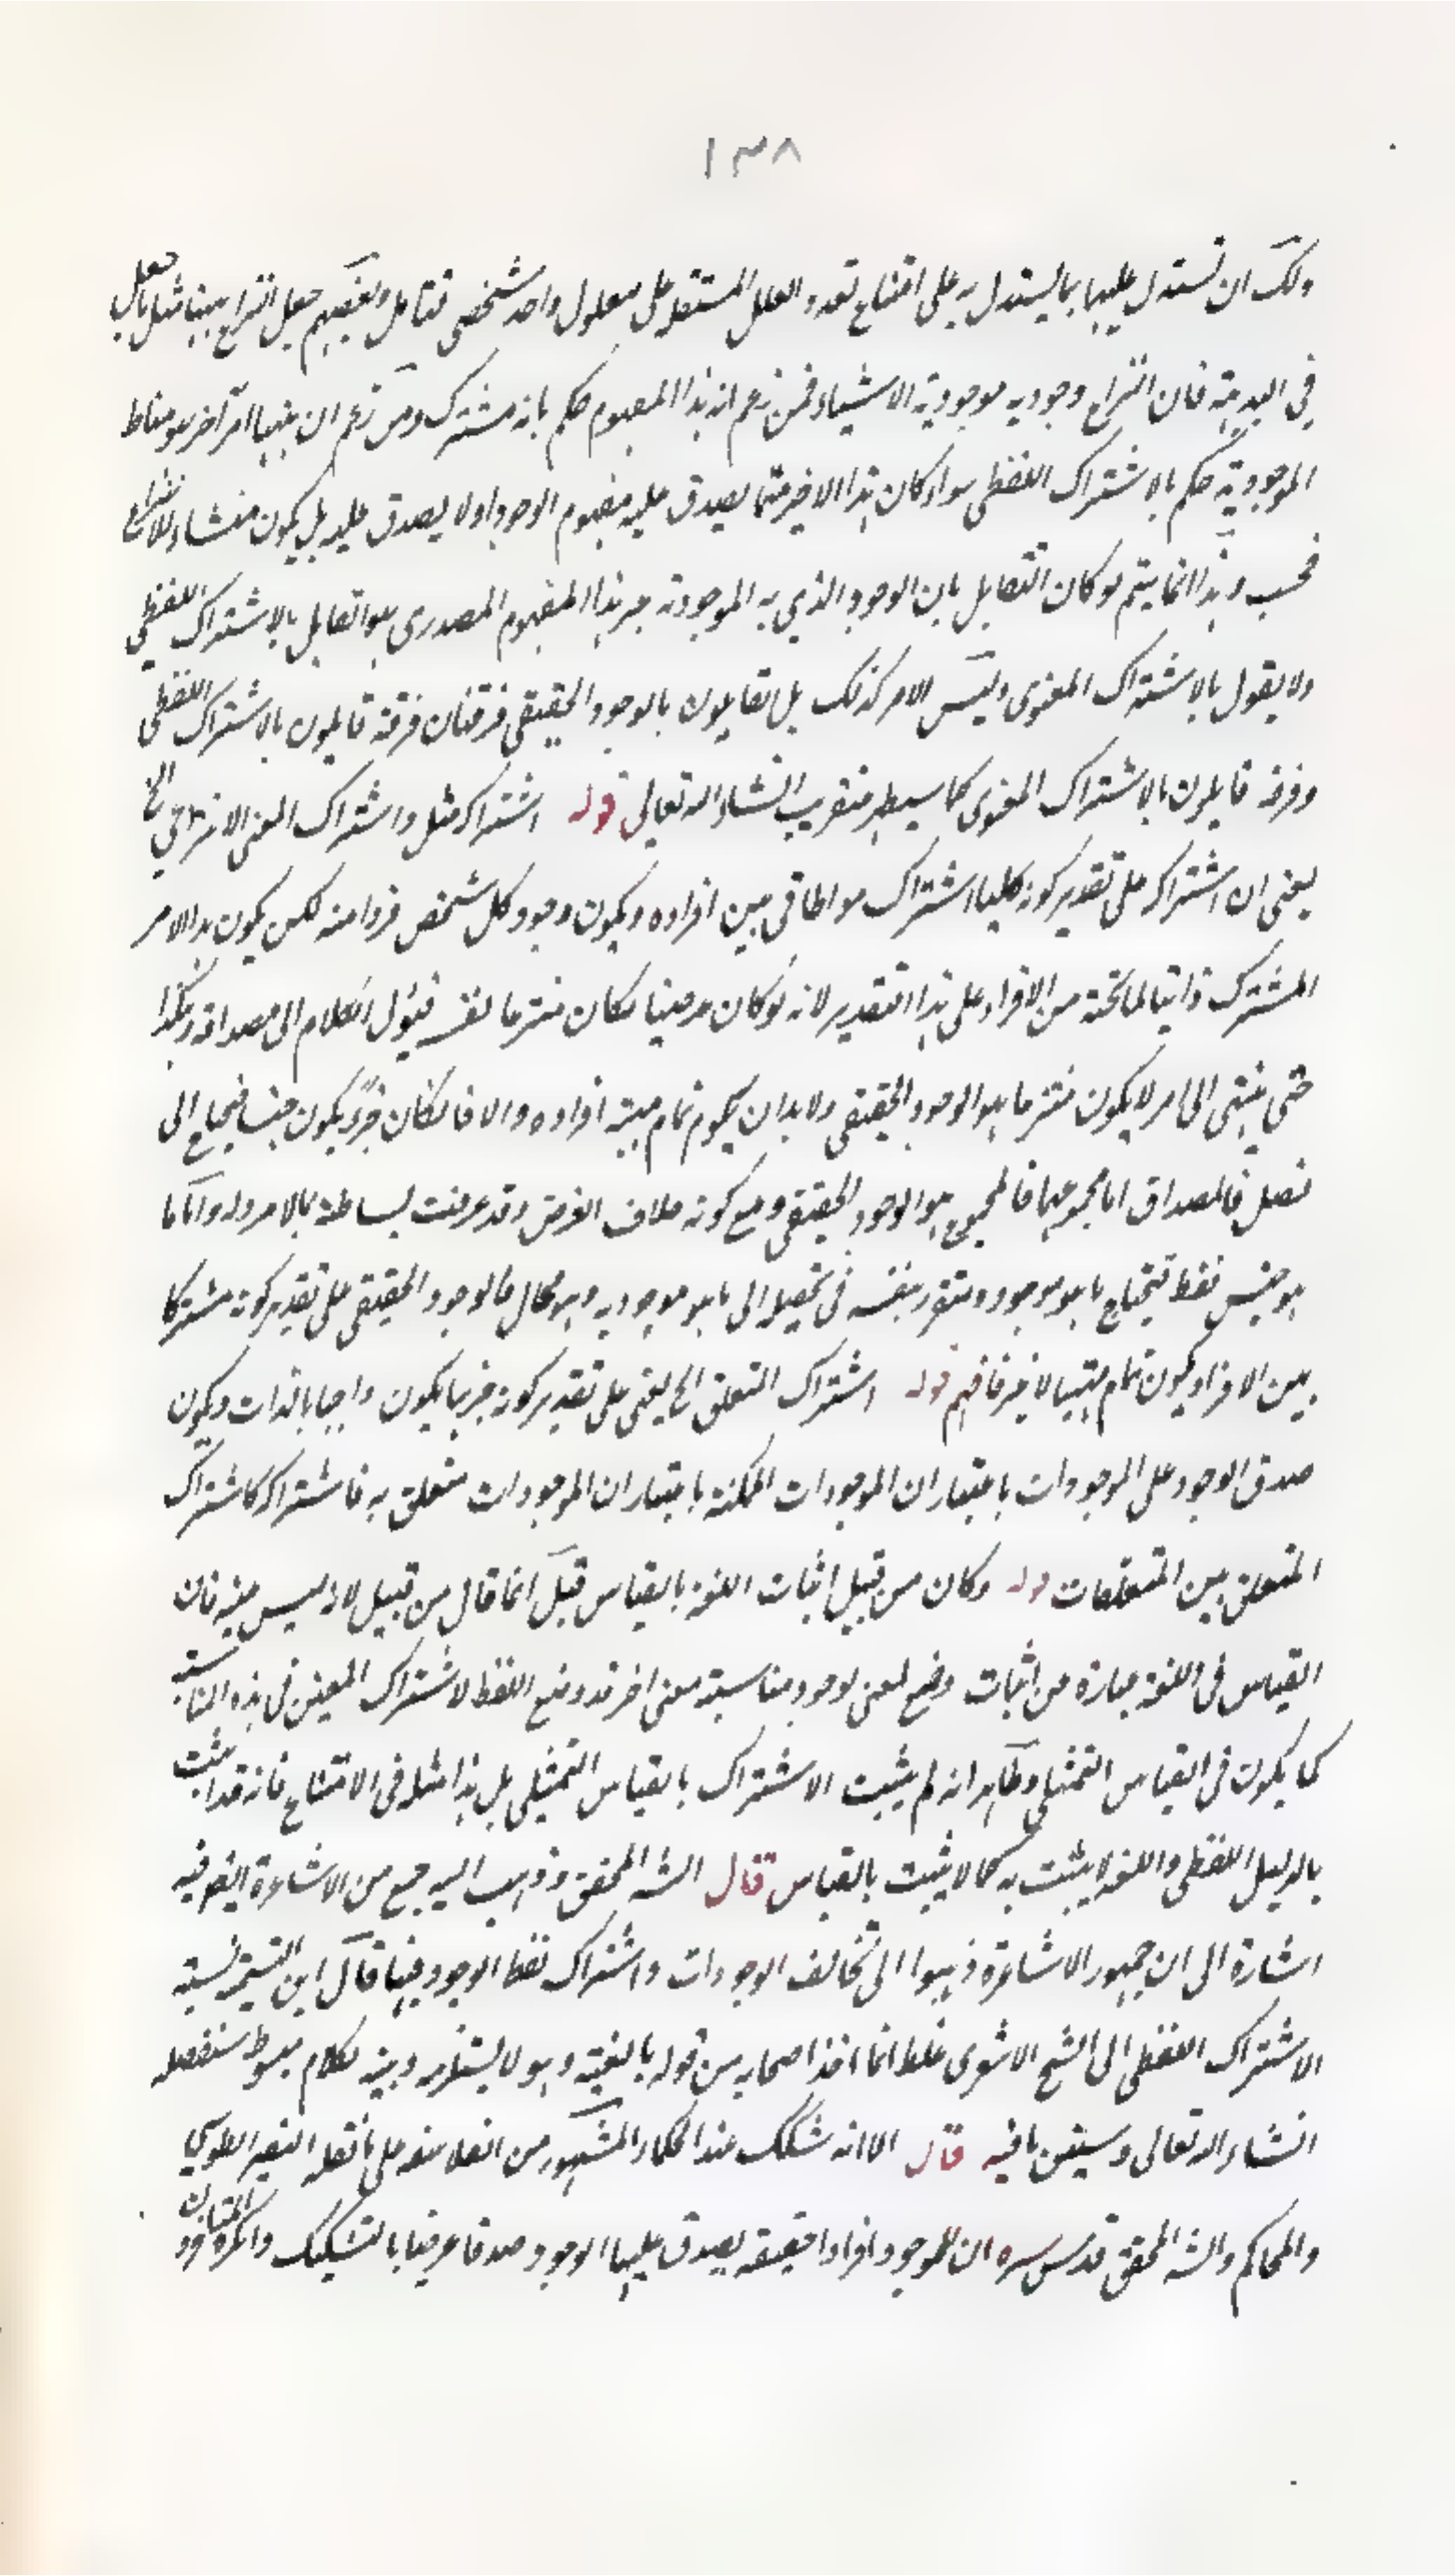 ١٣٨
ولك ان تستدل عليها بما يستدل به على امتناع تعدد العلل المستقلة على معلول واحد شخصى فتامل وبعضهم جعل النزاع مبنيا جعل
فى البديهة فان النزاع وجوديه موجودية الاشياء فمن زعم انه هذا المفهوم حكم بانه مشترك ومن زعم ان هنا امرا آخر هو مناط
الموجودية حكم بالاشتراك اللفظى سواء كان هذا الاخير مما يصدق عليه مفهوم الوجود اولا يصدق عليه بل يكون منشاء للانتزاع
فحسب وهذا انما يتم لو كان القايل بان الوجود الذي به الموجودية غير هذا المفهوم المصدرى هو القايل بالاشتراك اللفظي
ولا يقول بالاشتراك المعنوى وليس الامر كذلك بل القايلون بالوجود الحقيقى فرقتان فرقة قايلون بالاشتراك اللفظى
وفرقة قايلون بالاشتراك المعنوى كما سيظهر عنقريب انشاء الله تعالى قوله اشتراكه مثل واشتراك المعنى الانتزاعى الخ
يعنى ان اشتراكه على تقدير كونه كليا اشتراك مواطاتى بين افراده ويكون وجود كل شخص فردا منه لكن يكون هذا الامر
المشترك ذاتيا لما تحته من الافراد على هذا التقدير لانه لو كان عرضيا لكان منتزعا لنفسه فيؤل الكلام الى مصداقه وهكذا
حتى ينتهى الى امر لا يكون منتزعا هو الوجود الحقيقى ولا بد ان يكون تمام مهية افراده والا فان كان جزءً يكون جنسا فيحتاج الى
فصل فالمصداق اما مجموعهما فالمجموع هو الوجود الحقيقى ومع كونه خلاف الفرض وقد عرفت بساطته بالامر وله واما
هو جنس فقط فيحتاج ما هو موجود ومتقرر بنفسه فى تحصله الى ما هو موجود به وهو محال فالوجود الحقيقى على تقدير كونه مشتركا
بين الافراد يكون تمام مهيتها لا غير فافهم قوله اشتراك المتعلق الخ يعنى على تقدير كونه جزئيا يكون واجبا بالذات ويكون
صدق الوجود على الموجودات باعتبار ان الموجودات الممكنة باعتبار ان الموجودات متعلق به فاشتراكه كاشتراك
المتعلق بين المتعلقات قوله وكان من قبيل اثبات اللغة بالقياس قيل انما قال من قبيل لانه ليس عينه فان
القياس فى اللغة عبارة من اثبات وضع لمعنى لوجود مناسبته معنى اخر قد وضع اللفظ لاشتراك المعنيين فى هذه المناسبته
كما يكون فى القياس التمثيلى وظاهر انه لم يثبت الاشتراك بالقياس التمثيلى بل هذا مثله فى الامتناع فانه قد اثبت
بالدليل اللفظى واللغة لا يثبت به كما لا يثبت بالقياس قال الشه المحقق وذهب اليه جمع من الاشاعرة الخ فيه
اشارة الى ان جمهور الاشاعرة ذهبوا الى تخالف الوجودات واشتراك لفظ الوجود فيها قال ابن التيمية نسبته
الاشتراك اللفظى الى الشيخ الاشعرى غلط انما اخذ اصحابه من قوله بالعينية وهو لا يستلزمه وبينه بكلام مبسوط سنفصله
انشاء الله تعالى وسيتبين ما فيه قال الا انه مشكك عند الحكماء المشهور من الفلاسفة على ما نقله النصير الطوسي
والمحاكم والشه المحقق قدس سره ان للوجود افرادا حقيقة يصدق عليها الوجود صدقا عرضيا بالتشكيك وانكره